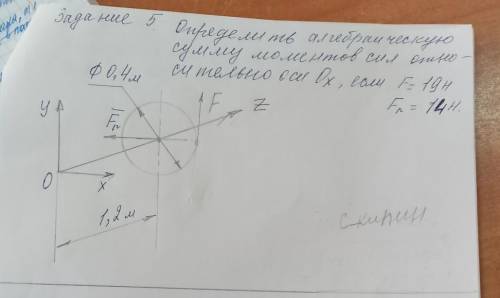 Задание 5 Определить алгебраическую
сумму моментов сил отно-
сительно оси Ox, если F = 19н
Fr = 14н.
ф0,4м
y
Fr
F
Z
O
x
1,2м